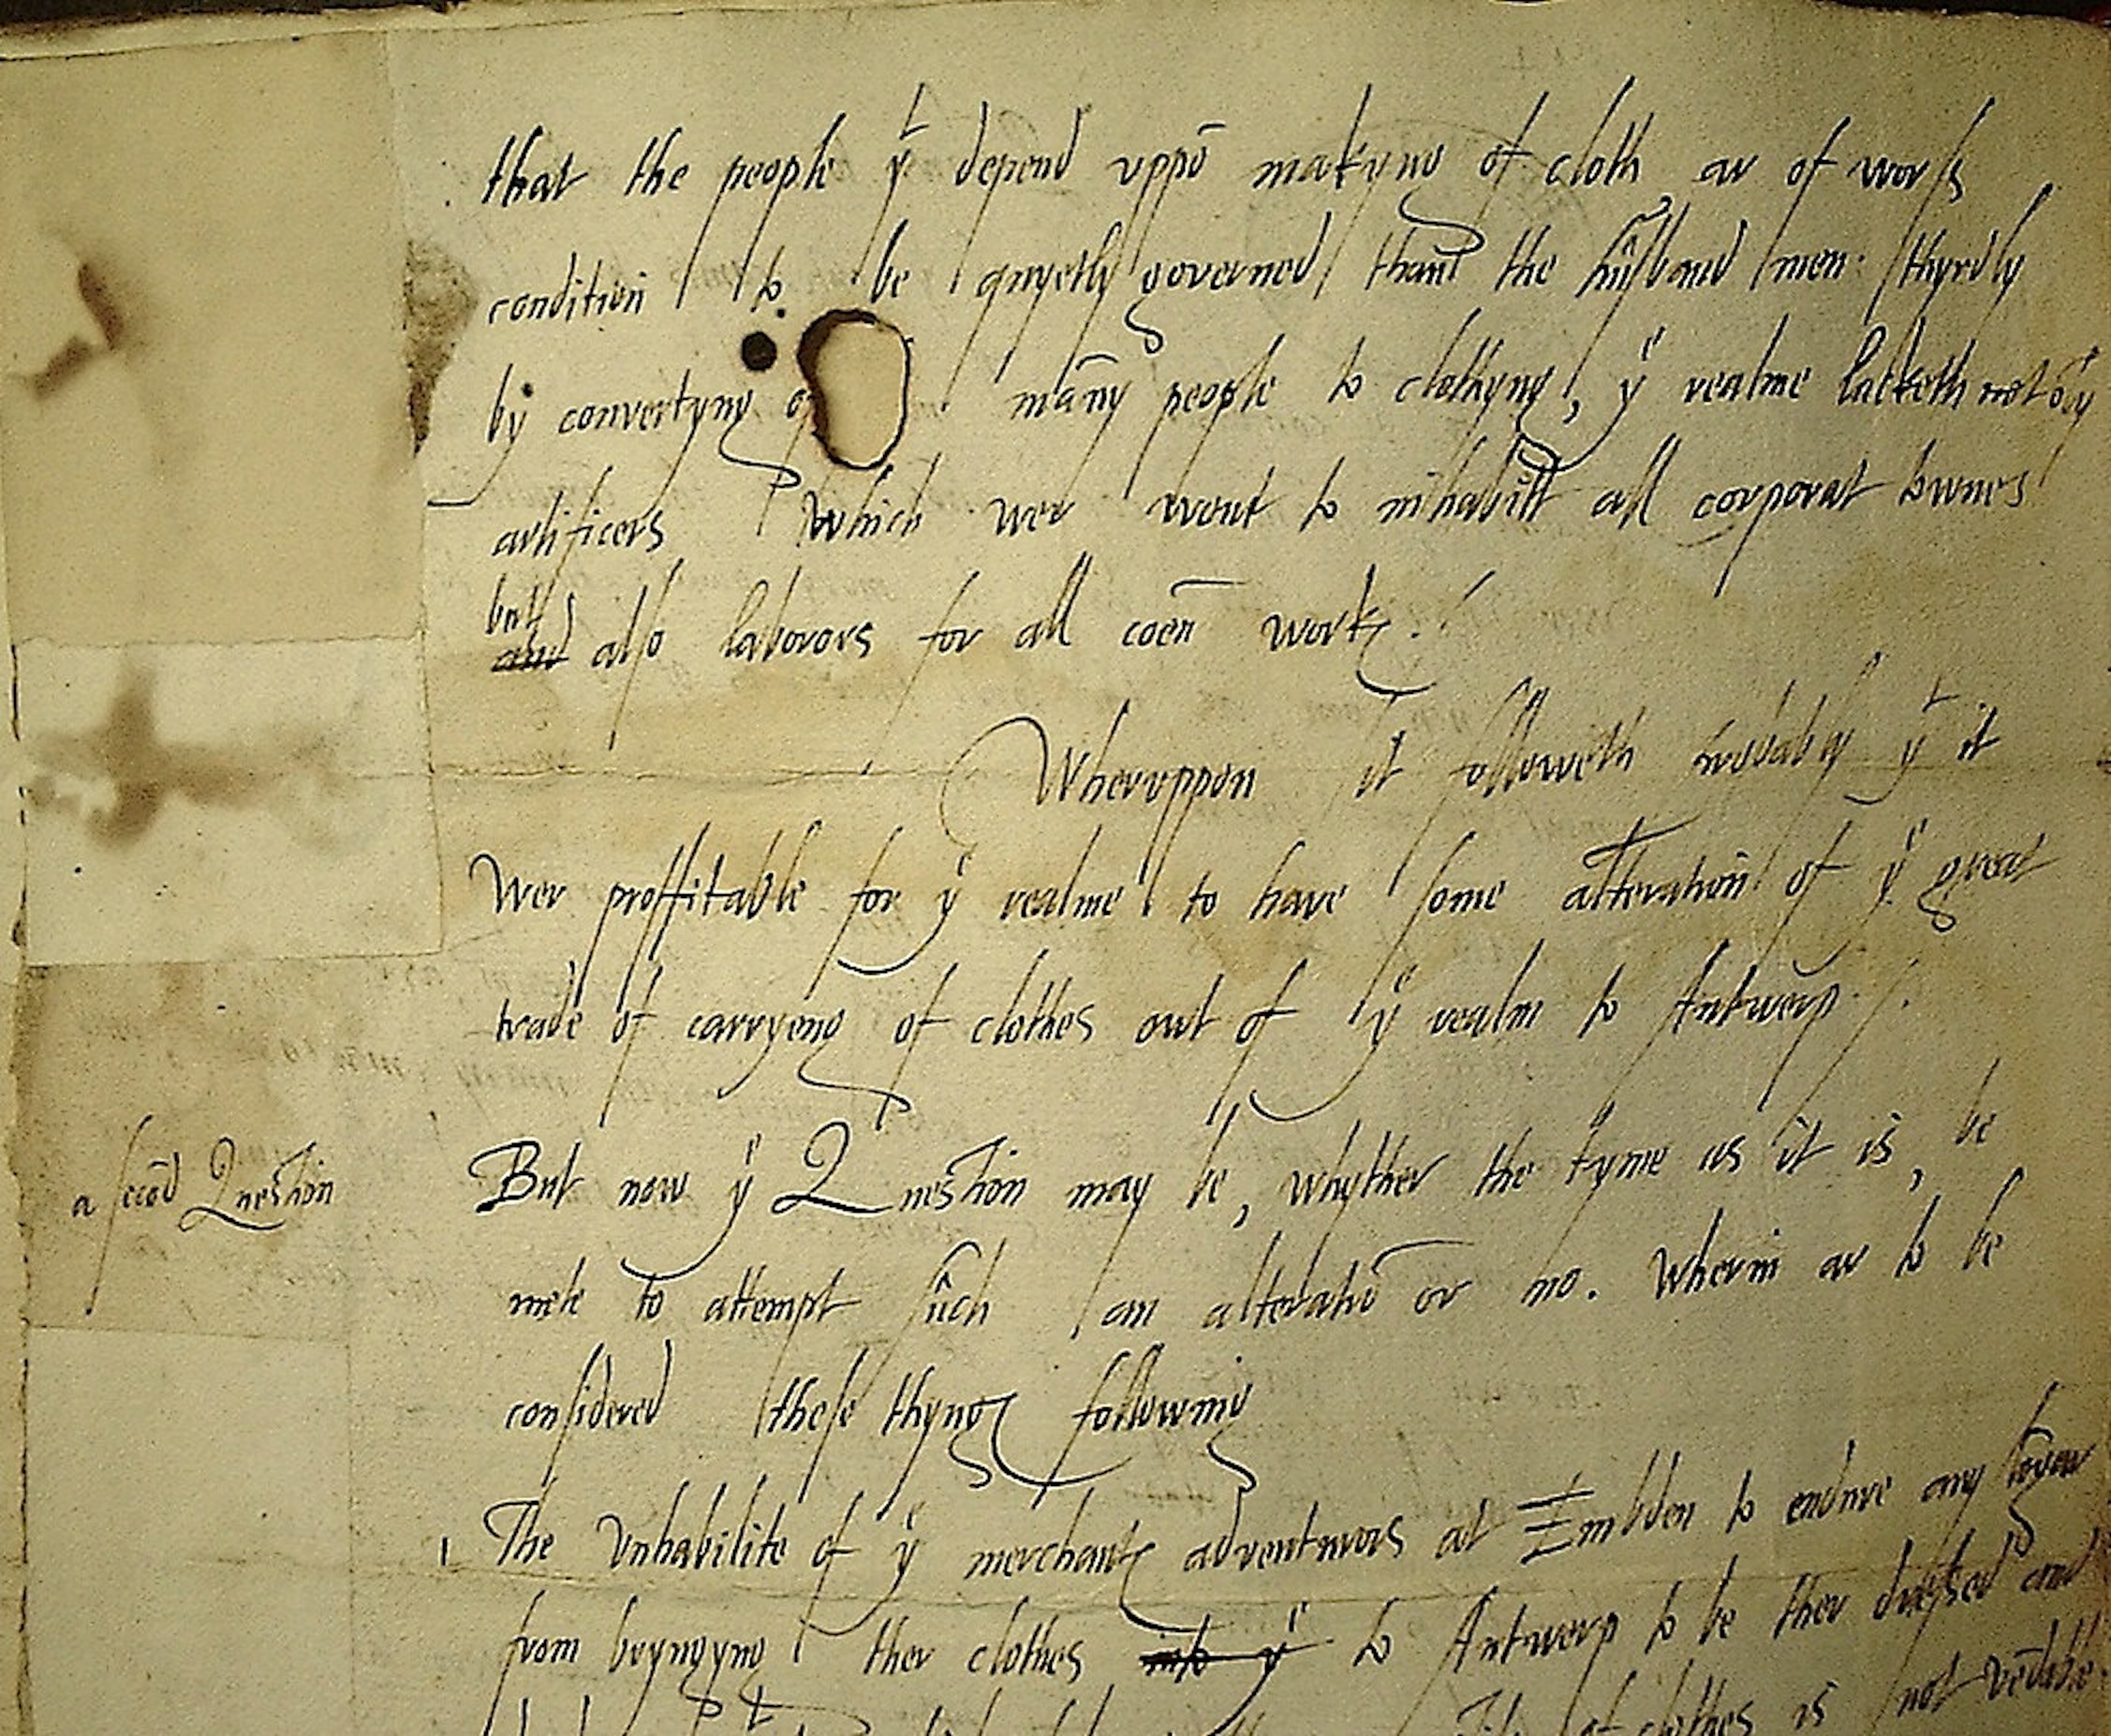 that the people yt depend uppō makyng of cloth ar of worss
condition to be quyetly governed than the husband men. thyrdly
by convertyng of māny people to clothyng, ye realme lacketh not oīy
artificers which wer wont to inhabitt all corporat townes
but
and also laborors for all coēn workes.
Wheruppon it followeth probably yt it
wer proffitable for ye realme to have some alteration of ye great
trade of carryeng of clothes out of ye realm to Antwerp.
a secōd Question
But now ye Question may be, whyther the tyme as it is, be
mete to attempt such an alteratiō or no. Wherin ar to be
considered these thynges following
1 The Unhabilite of ye merchantes adventurors at Embden to endure any
from bryngyng ther clothes into ye to Antwerp to be ther dressed and
clothes is not vēdable